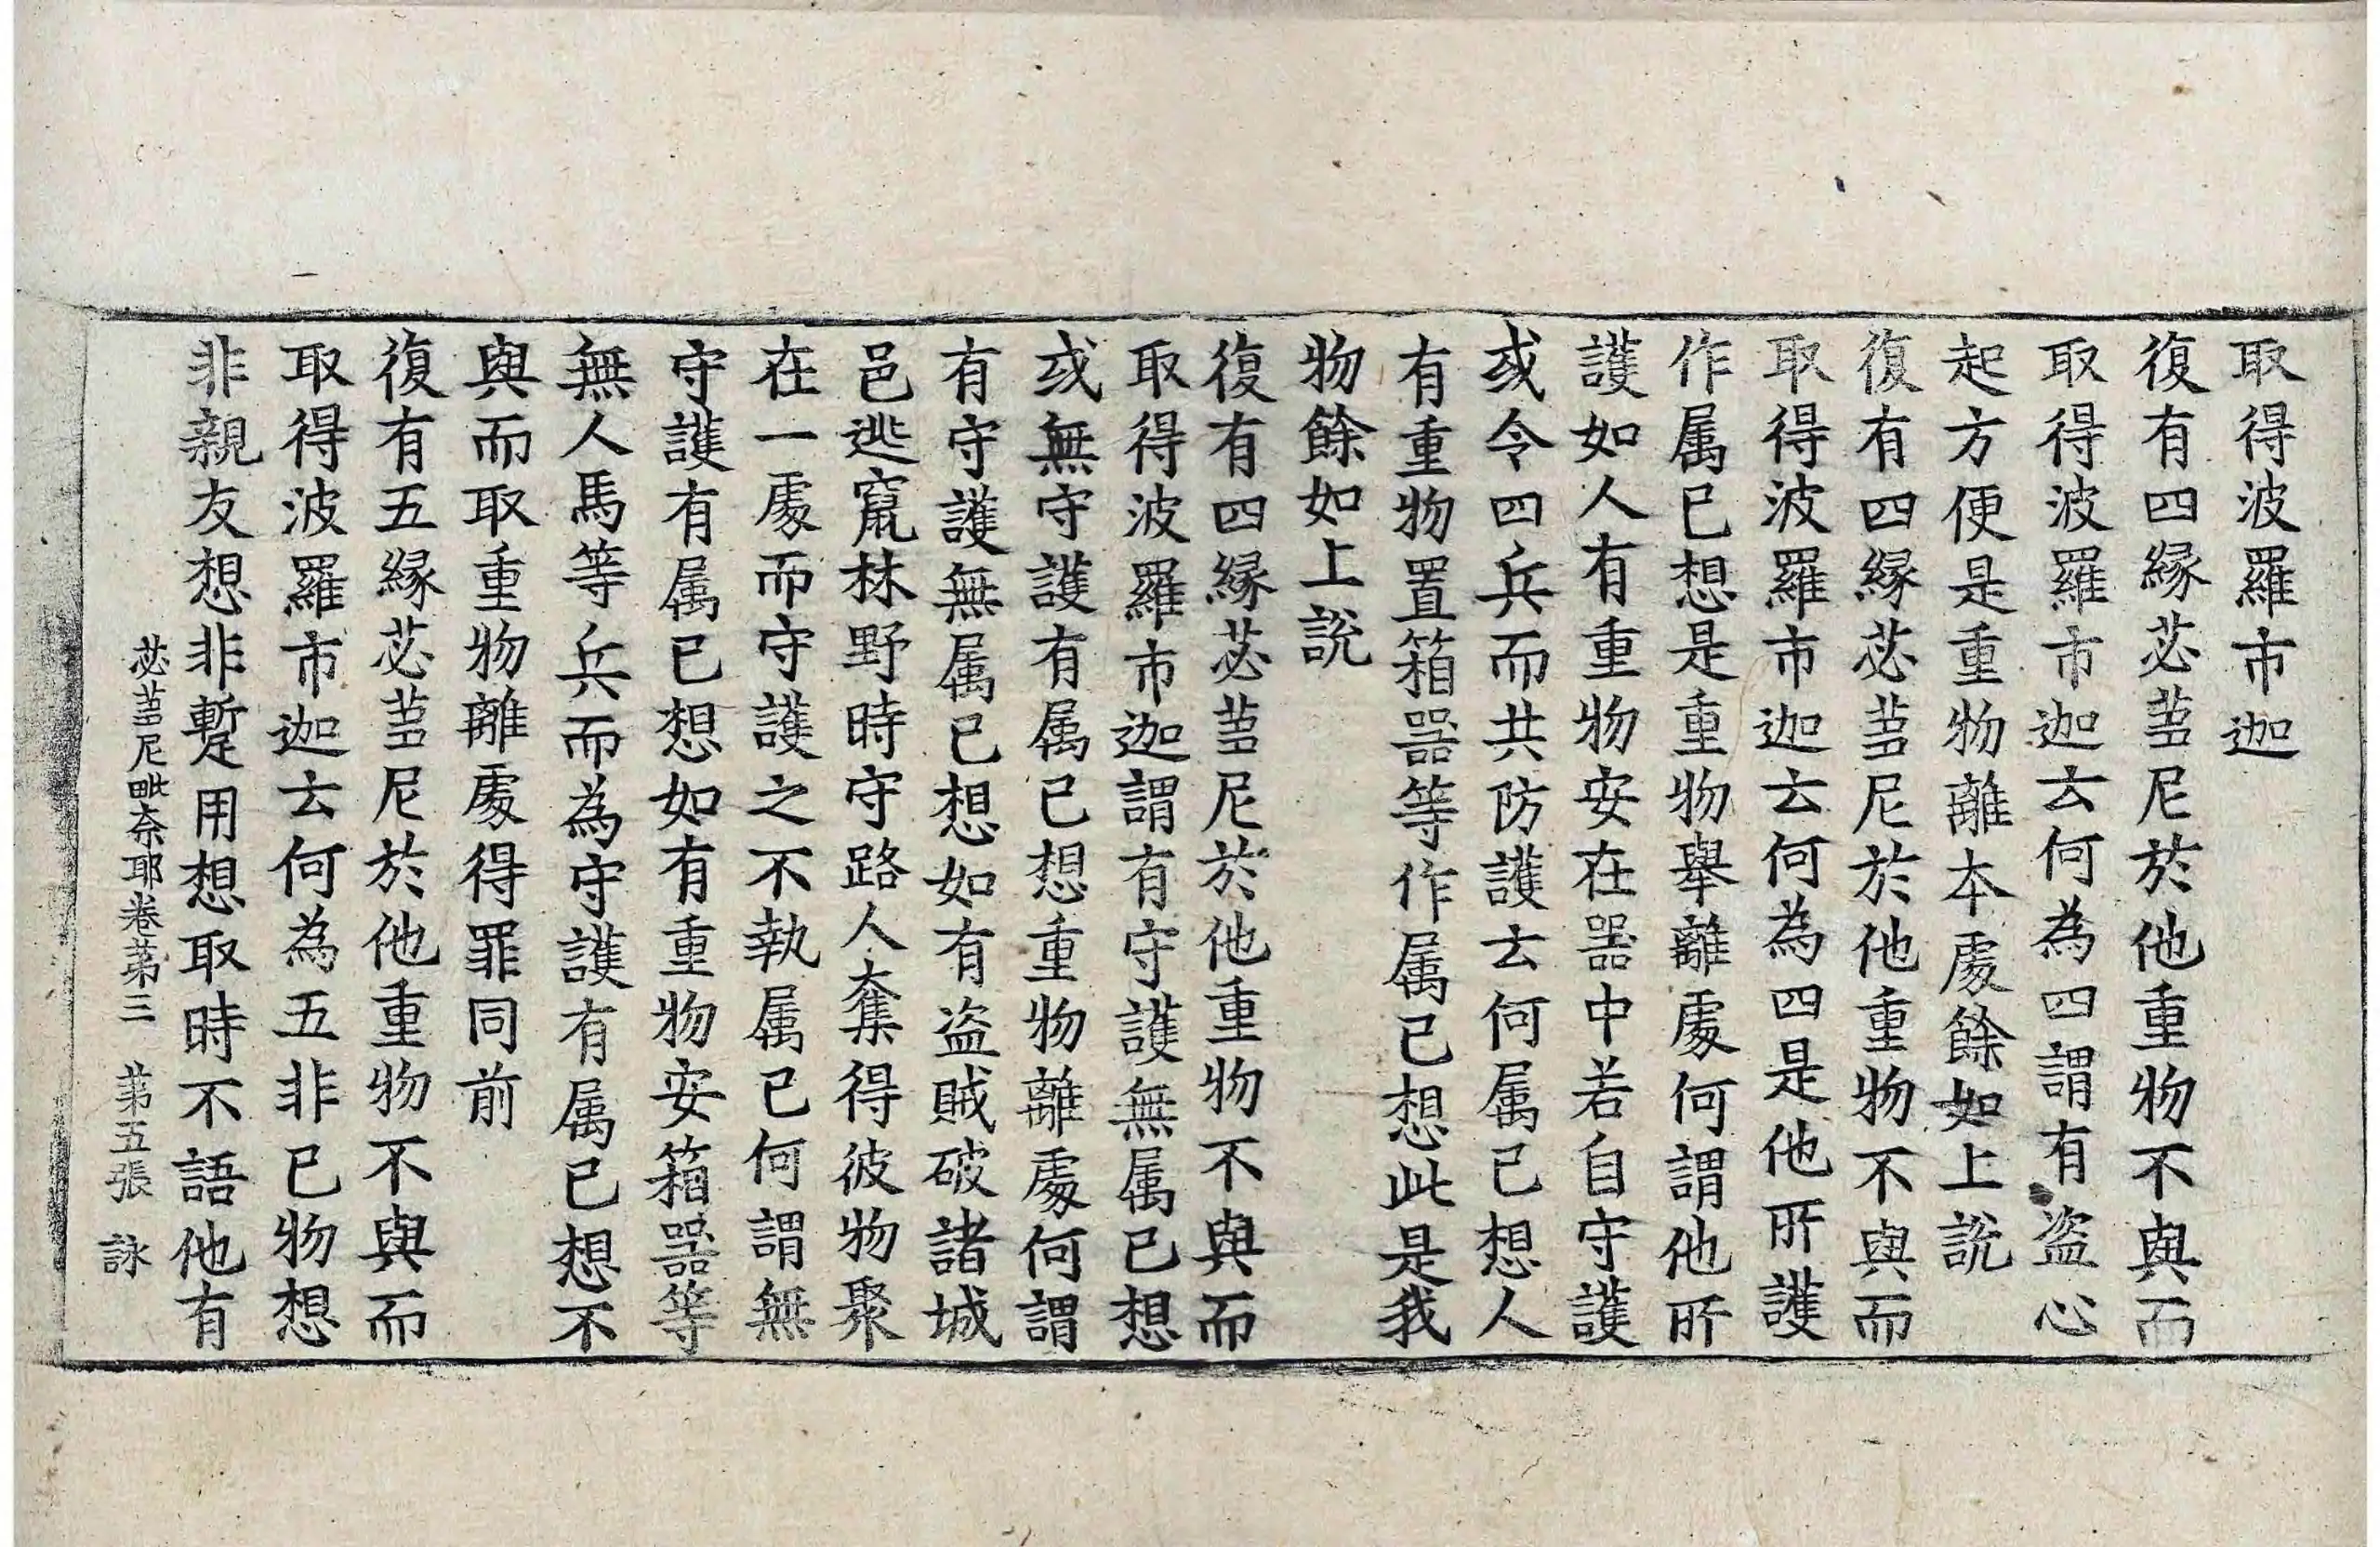 取得波羅市迦
復有四緣苾蒭尼於他重物不與而
取得波羅市迦去何為四謂有盗心
起方便是重物離本處餘如上說
復有四緣苾蒭尼於他重物不與而
取得波羅市迦去何為四是他所護
作属已想是重物舉離處何謂他所
護如人有重物安在器中若自守護
或令四兵而共防護去何属己想人
有重物置箱器等作属己想此是我
物餘如上說
復有四緣苾蒭尼於他重物不與而
取得波羅市迦謂有守護無属已想
或無守護有属己想重物離處何謂
有守護無属已想如有盗賊破諸城
邑逃竄林野時守路人奪得彼物聚
在一處而守護之不執属已何謂無
守護有属已想如有重物安箱器等
無人馬等兵而為守護有属已想不
與而取重物離處得罪同前
復有五緣苾蒭尼於他重物不與而
取得波羅市迦去何為五非已物想
非親友想非蹔用想取時不語他有
苾蒭尼毗奈耶卷苐三 苐五張 詠